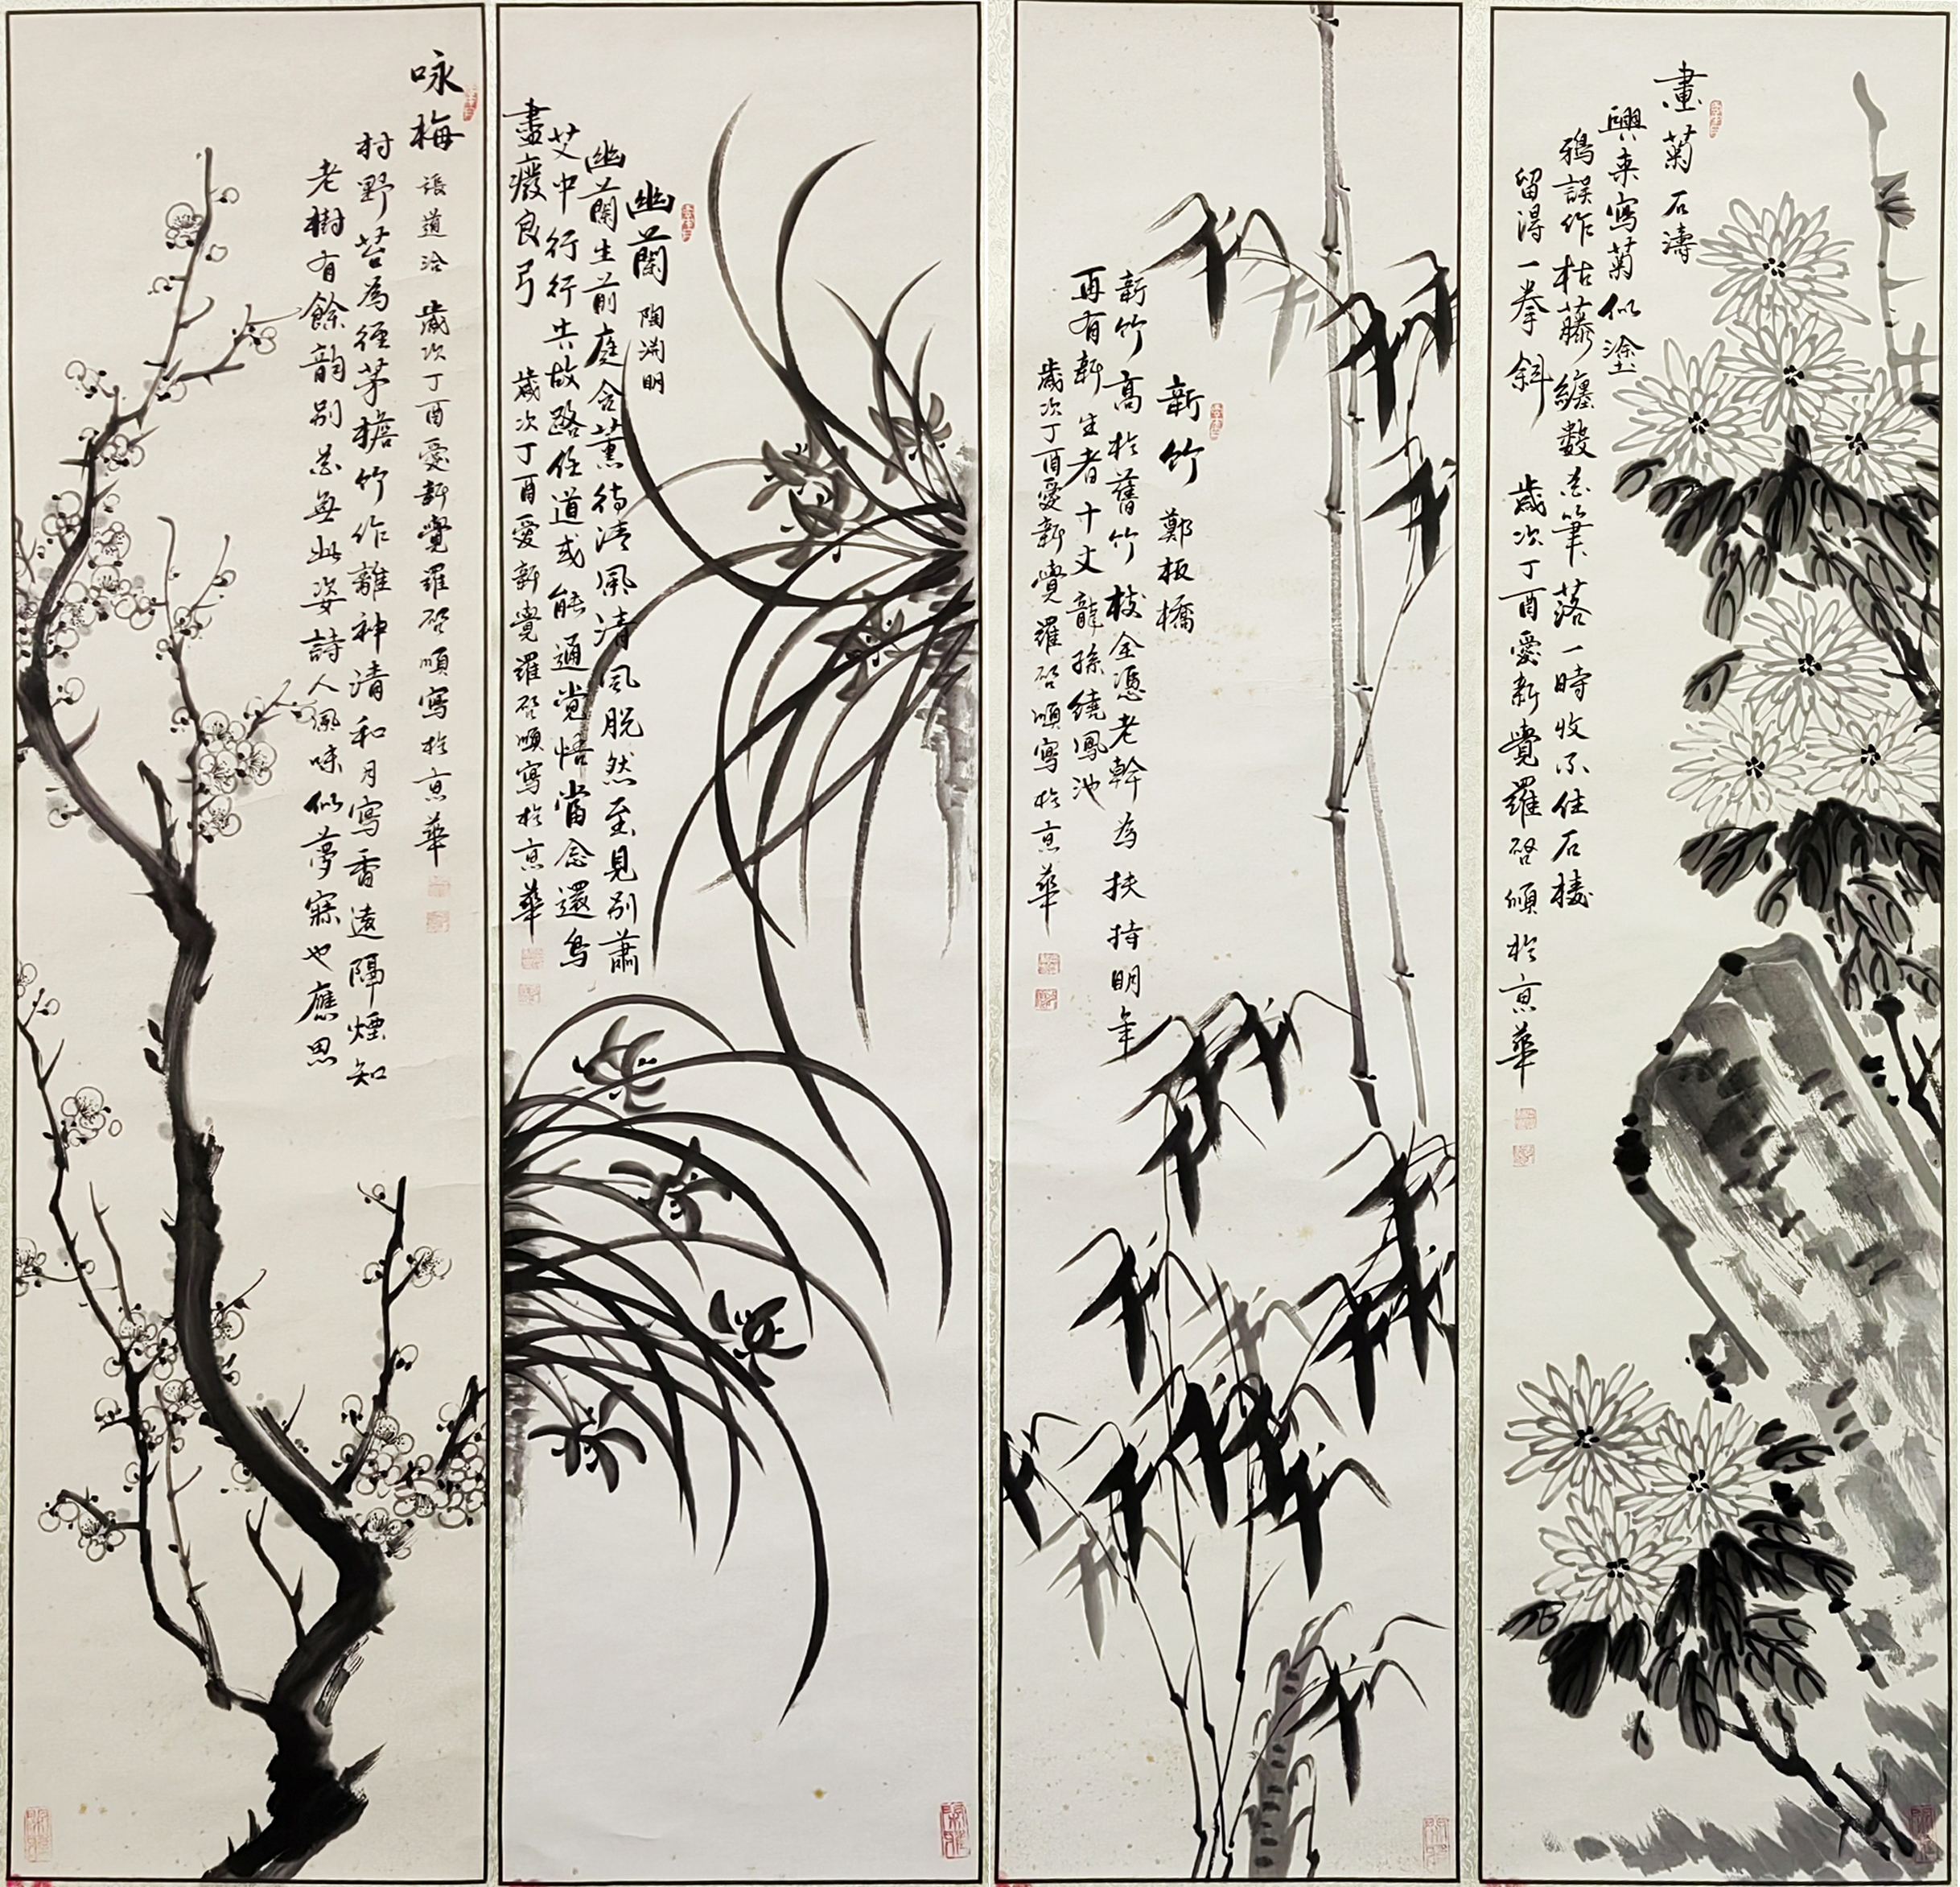 咏梅 張道洽 歲次丁酉愛新覺羅啓順寫於京華
村野苔為徑茅檐竹作離神清和月寫香遠隔煙知
老樹有餘韻別花無此姿詩人風味似夢寐也應思
幽蘭 陶渊明
幽蘭生前庭含薰待清風清風脱然至見別蕭
艾中行行失故路任道或能通覺悟當念還鳥
盡癈良弓 歲次丁酉愛新覺羅啓順寫於京華
新竹 鄭板橋
新竹高於舊竹枝全憑老幹為扶持明年
再有新生者十丈龍孫繞鳳池
歲次丁酉愛新覺羅啓順寫於京華
畫菊 石濤
興来寫菊似塗
鴉誤作枯藤纏数花筆落一時收不住石棱
留得一拳斜 歲次丁酉愛新覺羅啓順於京華